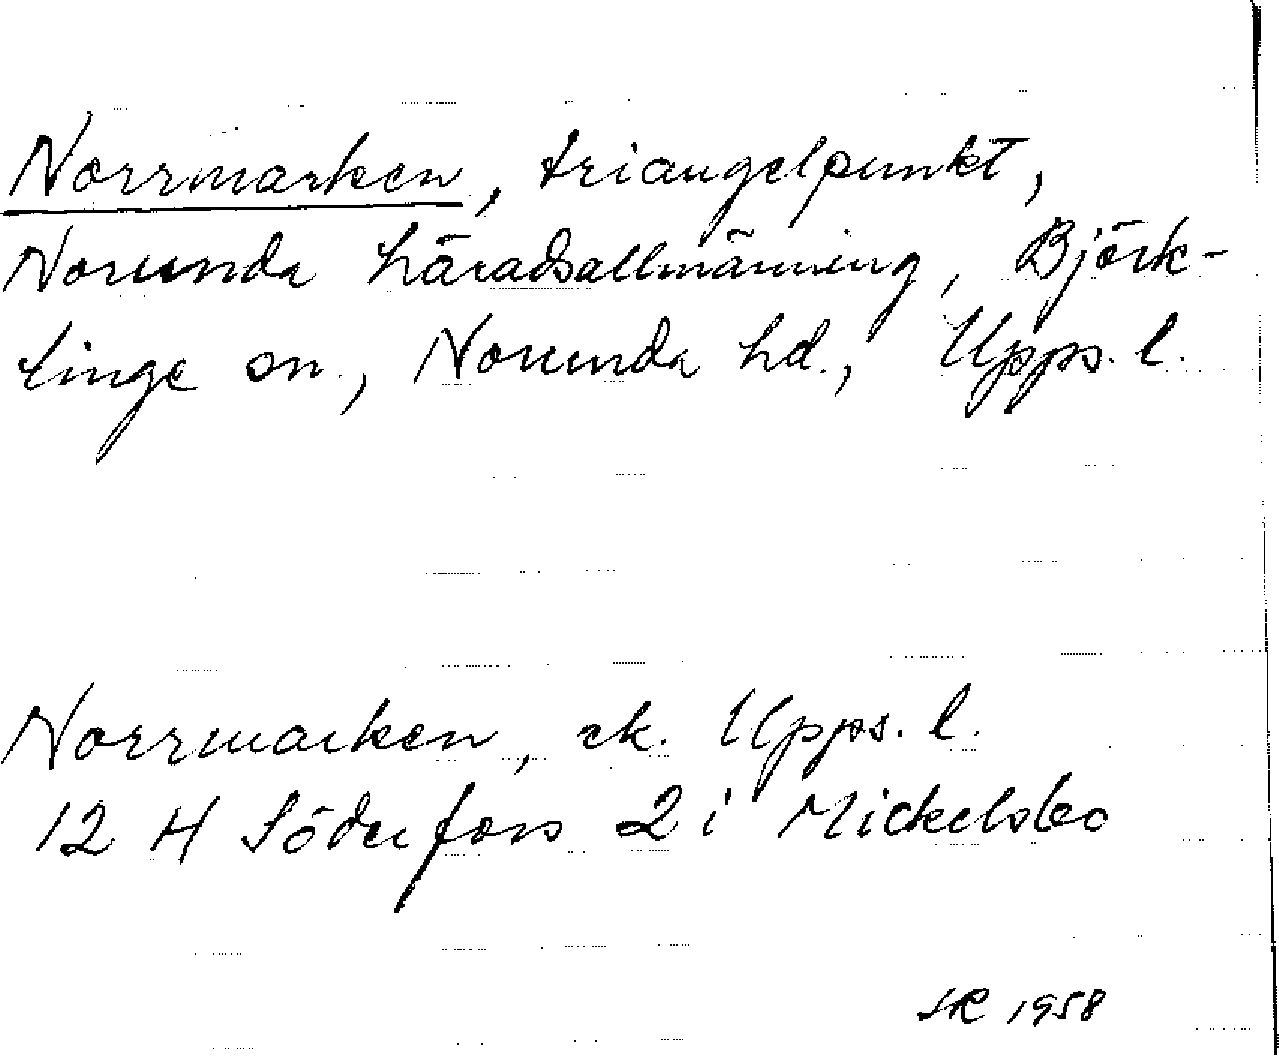 Norrmarken, triangelpunkt,
Norunda häradsallmänning, Björk-
linge sn., Norunda hd., Upps. l.
Norrmarken, ek. Upps. l.
12 H Söderfors 2 i Mickelsbo
SR 1958